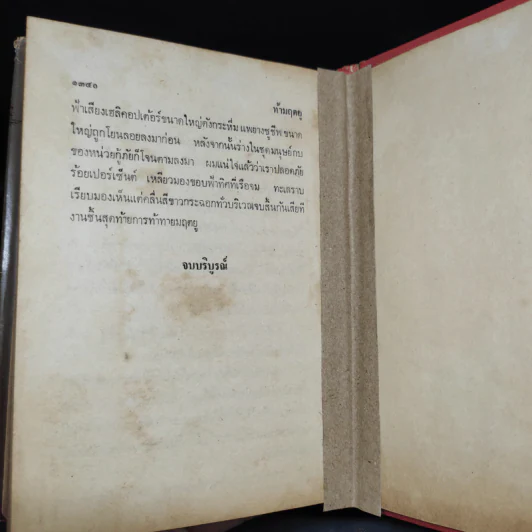 ๑๓๔๑
ท้ามฤตยู
ฟ้าเสียงเฮลิคอปเต้อร์ขนาดใหญ่ดังกระหึ่ม แพยางชูชีพ ขนาด
ใหญ่ถูกโยนลอยลงมาก่อน หลังจากนั้นร่างในชุดมนุษย์กบ
ของหน่วยกู้ภัยก็โจนตามลงมา ผมแน่ใจแล้วว่าเราปลอดภัย
ร้อยเปอร์เซ็นต์ เหลียวมองขอบฟ้าทิศที่เรือจม ทะเลราบ
เรียบมองเห็นแต่คลื่นสีขาวกระฉอกทั่วบริเวณจบสิ้นกันเสียที
งานชิ้นสุดท้ายการท้าทายมฤตยู
จบบริบูรณ์